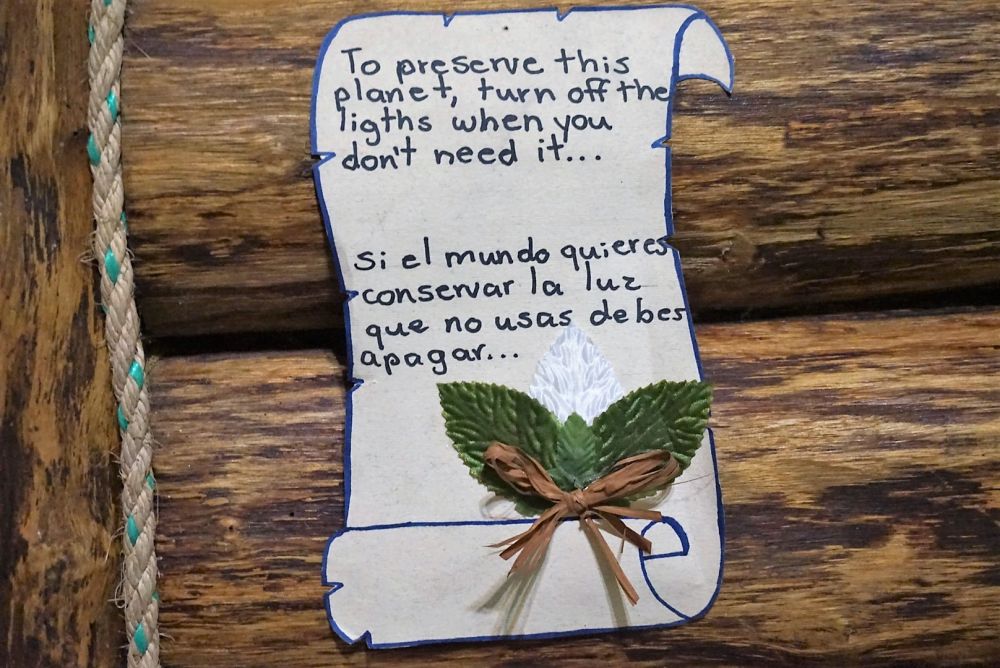 To preserve this
planet, turn off the
ligths when you
don't need it...
si el mundo quieres
conservar la luz
que no usas debes
apagar...